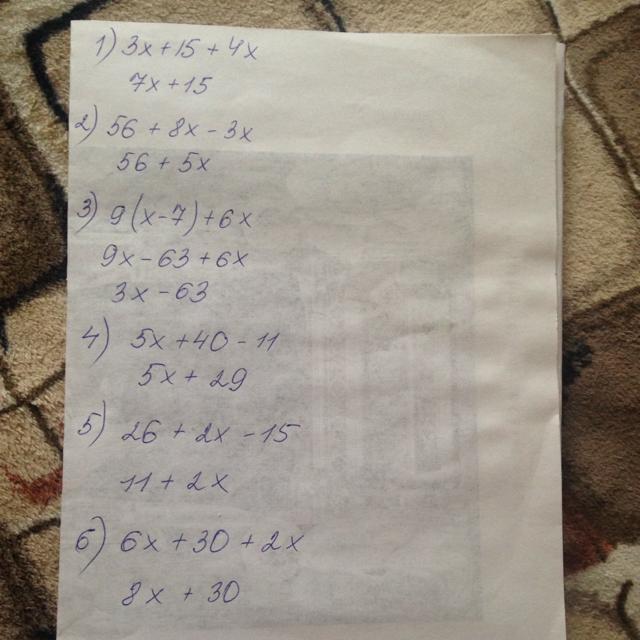 1) 3x+15+4x
7x+15
2) 56+8x-3x
56+5x
3) 9(x-7)+6x
9x-63+6x
3x-63
4) 5x+40-11
5x+29
5) 26+2x-15
11+2x
6) 6x+30+2x
8x+30